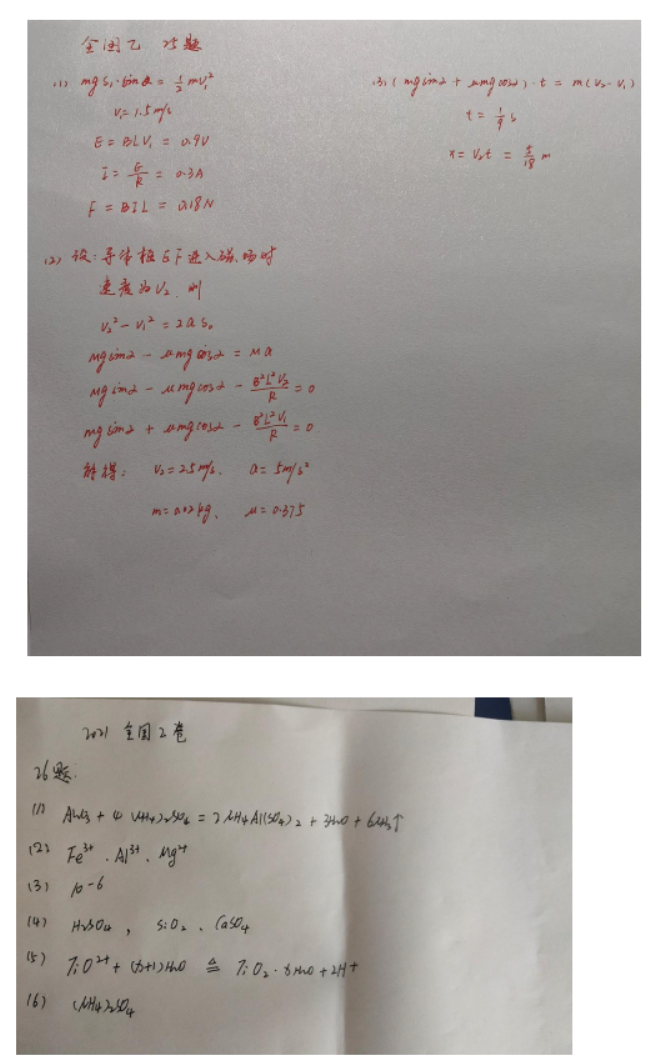 全国乙 25题
(1) mgs₁·sinα = ½mv₁²
v₁=1.5m/s
E = BLV₁ = 0.9V
I = E/R = 0.3A
F = BIL = 0.18N
(2) 设:导体棒EF进入磁场时
速度为V₂.则
V₂² - V₁² = 2as₀
Mgsinα - μmgcosα = Ma
Mgsinα - μmgcosα - B²L²V₂/R = 0
mgsinα + μmgcosα - B²L²V₁/R = 0
解得: V₂=2.5m/s. a=5m/s²
m=0.02kg. μ=0.375
(3) (mgsinα + μmgcosα)·t = m(V₂-V₁)
t = 1/9 s
x = V₂t = 5/18 m
2021 全国乙卷
26题:
(1) Al₂O₃ + 4(NH₄)₂SO₄ = 2NH₄Al(SO₄)₂ + 3H₂O + 6NH₃↑
(2) Fe³⁺.Al³⁺.Mg²⁺
(3) 10⁻⁶
(4) H₂SO₄, SiO₂、CaSO₄
(5) TiO²⁺ + (x+1)H₂O ≜ TiO₂·xH₂O + 2H⁺
(6) (NH₄)₂SO₄